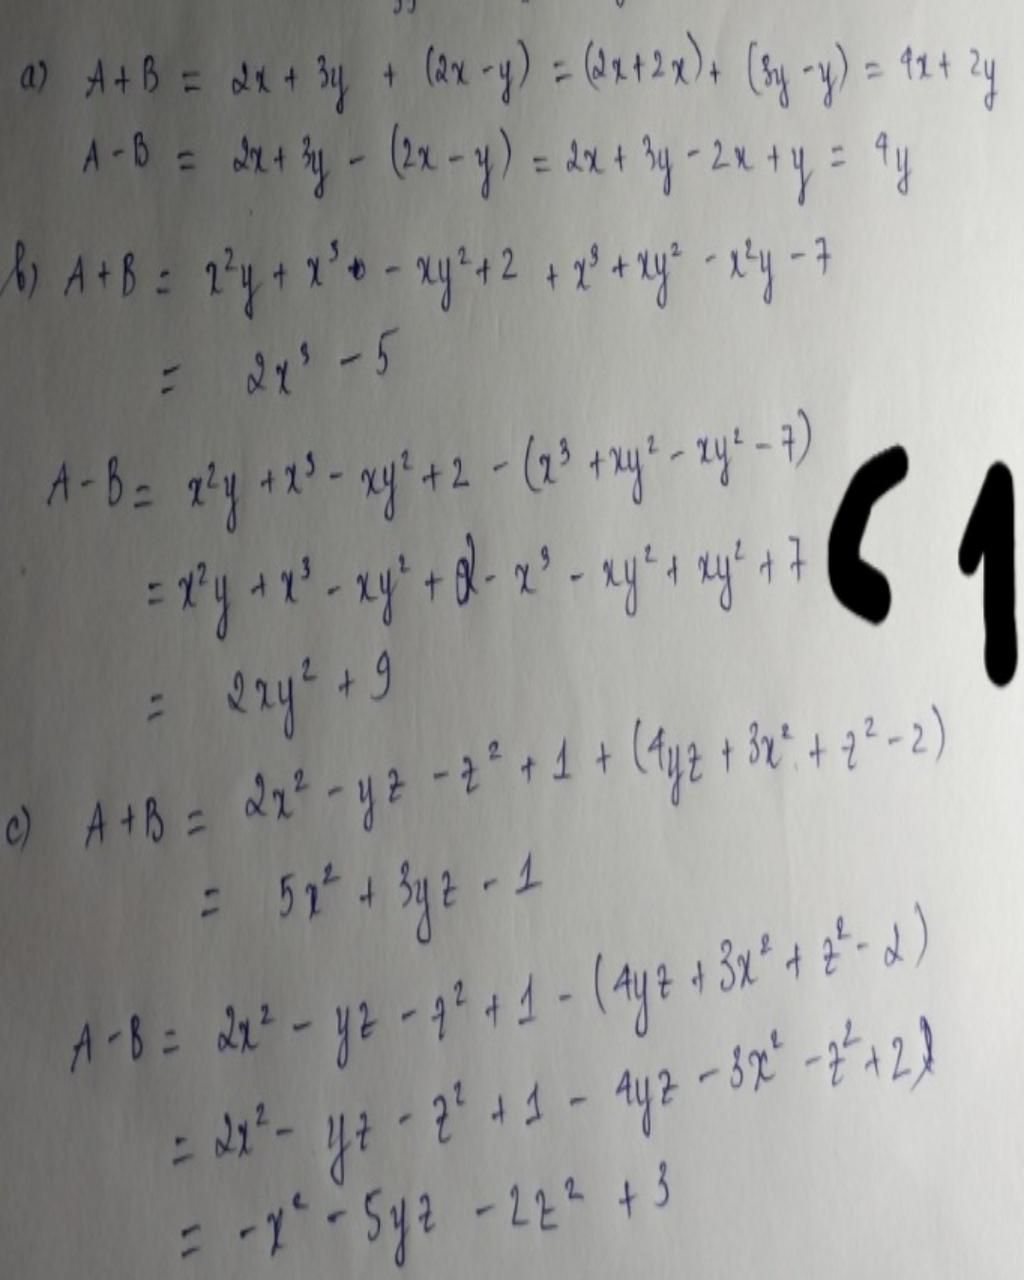 a) A+B = 2x + 3y + (2x - y) = (2x+2x) + (3y - y) = 4x + 2y
A - B = 2x + 3y - (2x - y) = 2x + 3y - 2x + y = 4y
b) A+B = x²y + x³ - xy² + 2 + x³ + xy² - x²y - 7
= 2x³ - 5
A - B = x²y + x³ - xy² + 2 - (x³ + xy² - xy² - 7)
= x²y + x³ - xy² + 2 - x³ - xy² + xy² + 7
C1
= 2xy² + 9
c) A+B = 2x² - yz - z² + 1 + (4yz + 3x² + z² - 2)
= 5x² + 3yz - 1
A - B = 2x² - yz - z² + 1 - (4yz + 3x² + z² - 2)
= 2x² - yz - z² + 1 - 4yz - 3x² - z² + 2
= -x² - 5yz - 2z² + 3